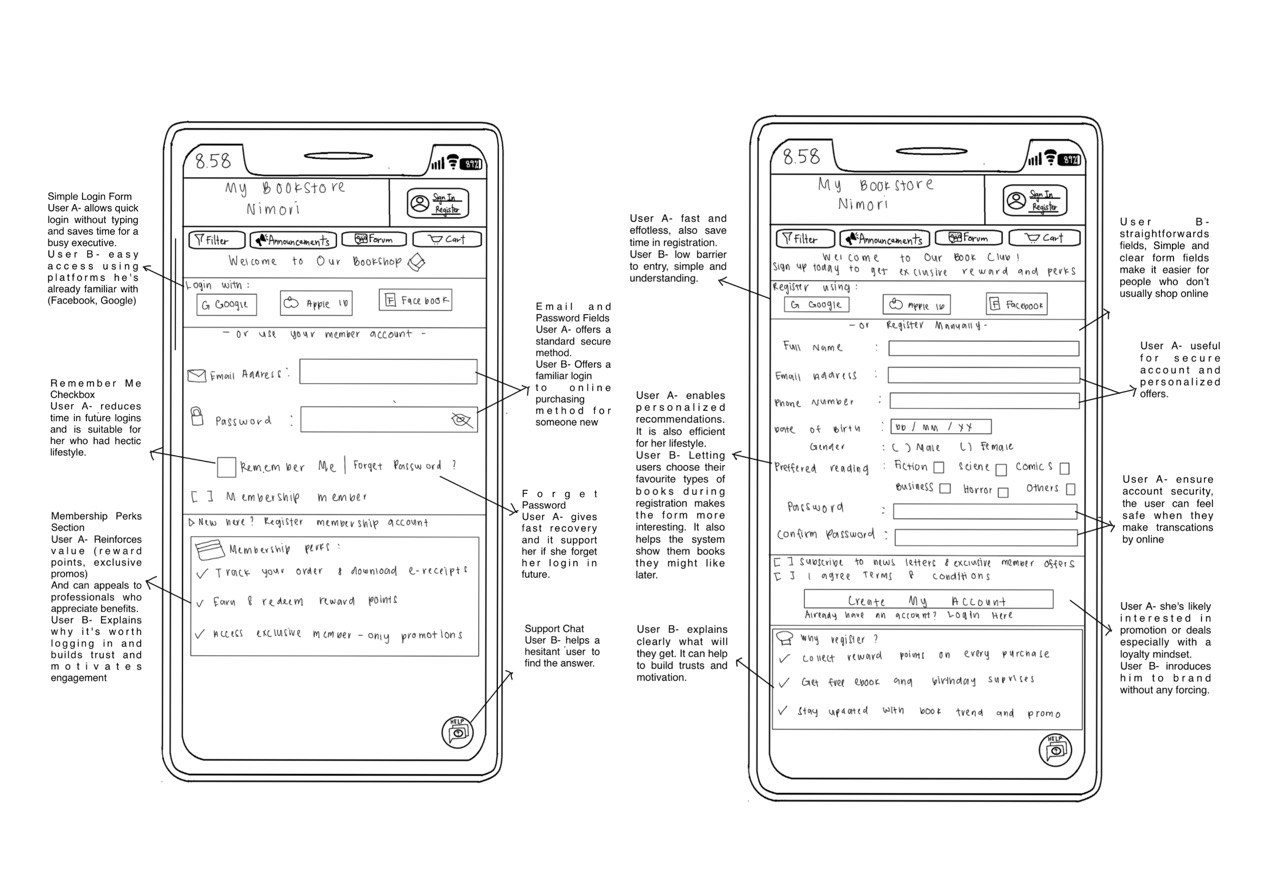 Simple Login Form
User A- allows quick
login without typing
and saves time for a
busy executive.
User B- easy
access using
platforms he's
already familiar with
(Facebook, Google)
Remember Me
Checkbox
User A- reduces
time in future logins
and is suitable for
her who had hectic
lifestyle.
Membership Perks
Section
User A- Reinforces
value (reward
points, exclusive
promos)
And can appeals to
professionals who
appreciate benefits.
User B- Explains
why it's worth
logging in and
builds trust and
motivates
engagement
8.58
89%
My Bookstore
Nimori
Sign In
Register
Filter
Announcements
Forum
Cart
Welcome to Our Bookshop
Login with :
G Google
Apple ID
Facebook
- or use your member account -
Email Address :
Password :
Remember Me | Forget Password ?
[ ] Membership member
New here ? Register membership account
Membership perks :
✓ Track your order & download e-receipts
✓ Earn & redeem reward points
✓ Access exclusive member-only promotions
HELP
?
Email and
Password Fields
User A- offers a
standard secure
method.
User B- Offers a
familiar login
to online
purchasing
method for
someone new
Forget
Password
User A- gives
fast recovery
and it support
her if she forget
her login in
future.
Support Chat
User B- helps a
hesitant user to
find the answer.
User A- fast and
effotless, also save
time in registration.
User B- low barrier
to entry, simple and
understanding.
User A- enables
personalized
recommendations.
It is also efficient
for her lifestyle.
User B- Letting
users choose their
favourite types of
books during
registration makes
the form more
interesting. It also
helps the system
show them books
they might like
later.
User B- explains
clearly what will
they get. It can help
to build trusts and
motivation.
8.58
89%
My Bookstore
Nimori
Sign In
Register
Filter
Announcements
Forum
Cart
Welcome to Our Book Club !
Sign up today to get exclusive reward and perks
Register using :
G Google
Apple ID
Facebook
- or Register Manually -
Full Name :
Email Address :
Phone Number :
Date of Birth : DD / MM / YY
Gender : ( ) Male ( ) Female
Preffered reading : Fiction Sciene Comics
Business Horror Others
Password :
Confirm Password :
[ ] Subscribe to news letters & exclusive member offers
[ ] I agree Terms & conditions
Create My Account
Already have an account? Login Here
Why register ?
✓ Collect reward points on every purchase
✓ Get free ebook and birthday suprises
✓ Stay updated with book trend and promo
HELP
?
User B-
straightforwards
fields, Simple and
clear form fields
make it easier for
people who don't
usually shop online
User A- useful
for secure
account and
personalized
offers.
User A- ensure
account security,
the user can feel
safe when they
make transcations
by online
User A- she's likely
interested in
promotion or deals
especially with a
loyalty mindset.
User B- inroduces
him to brand
without any forcing.